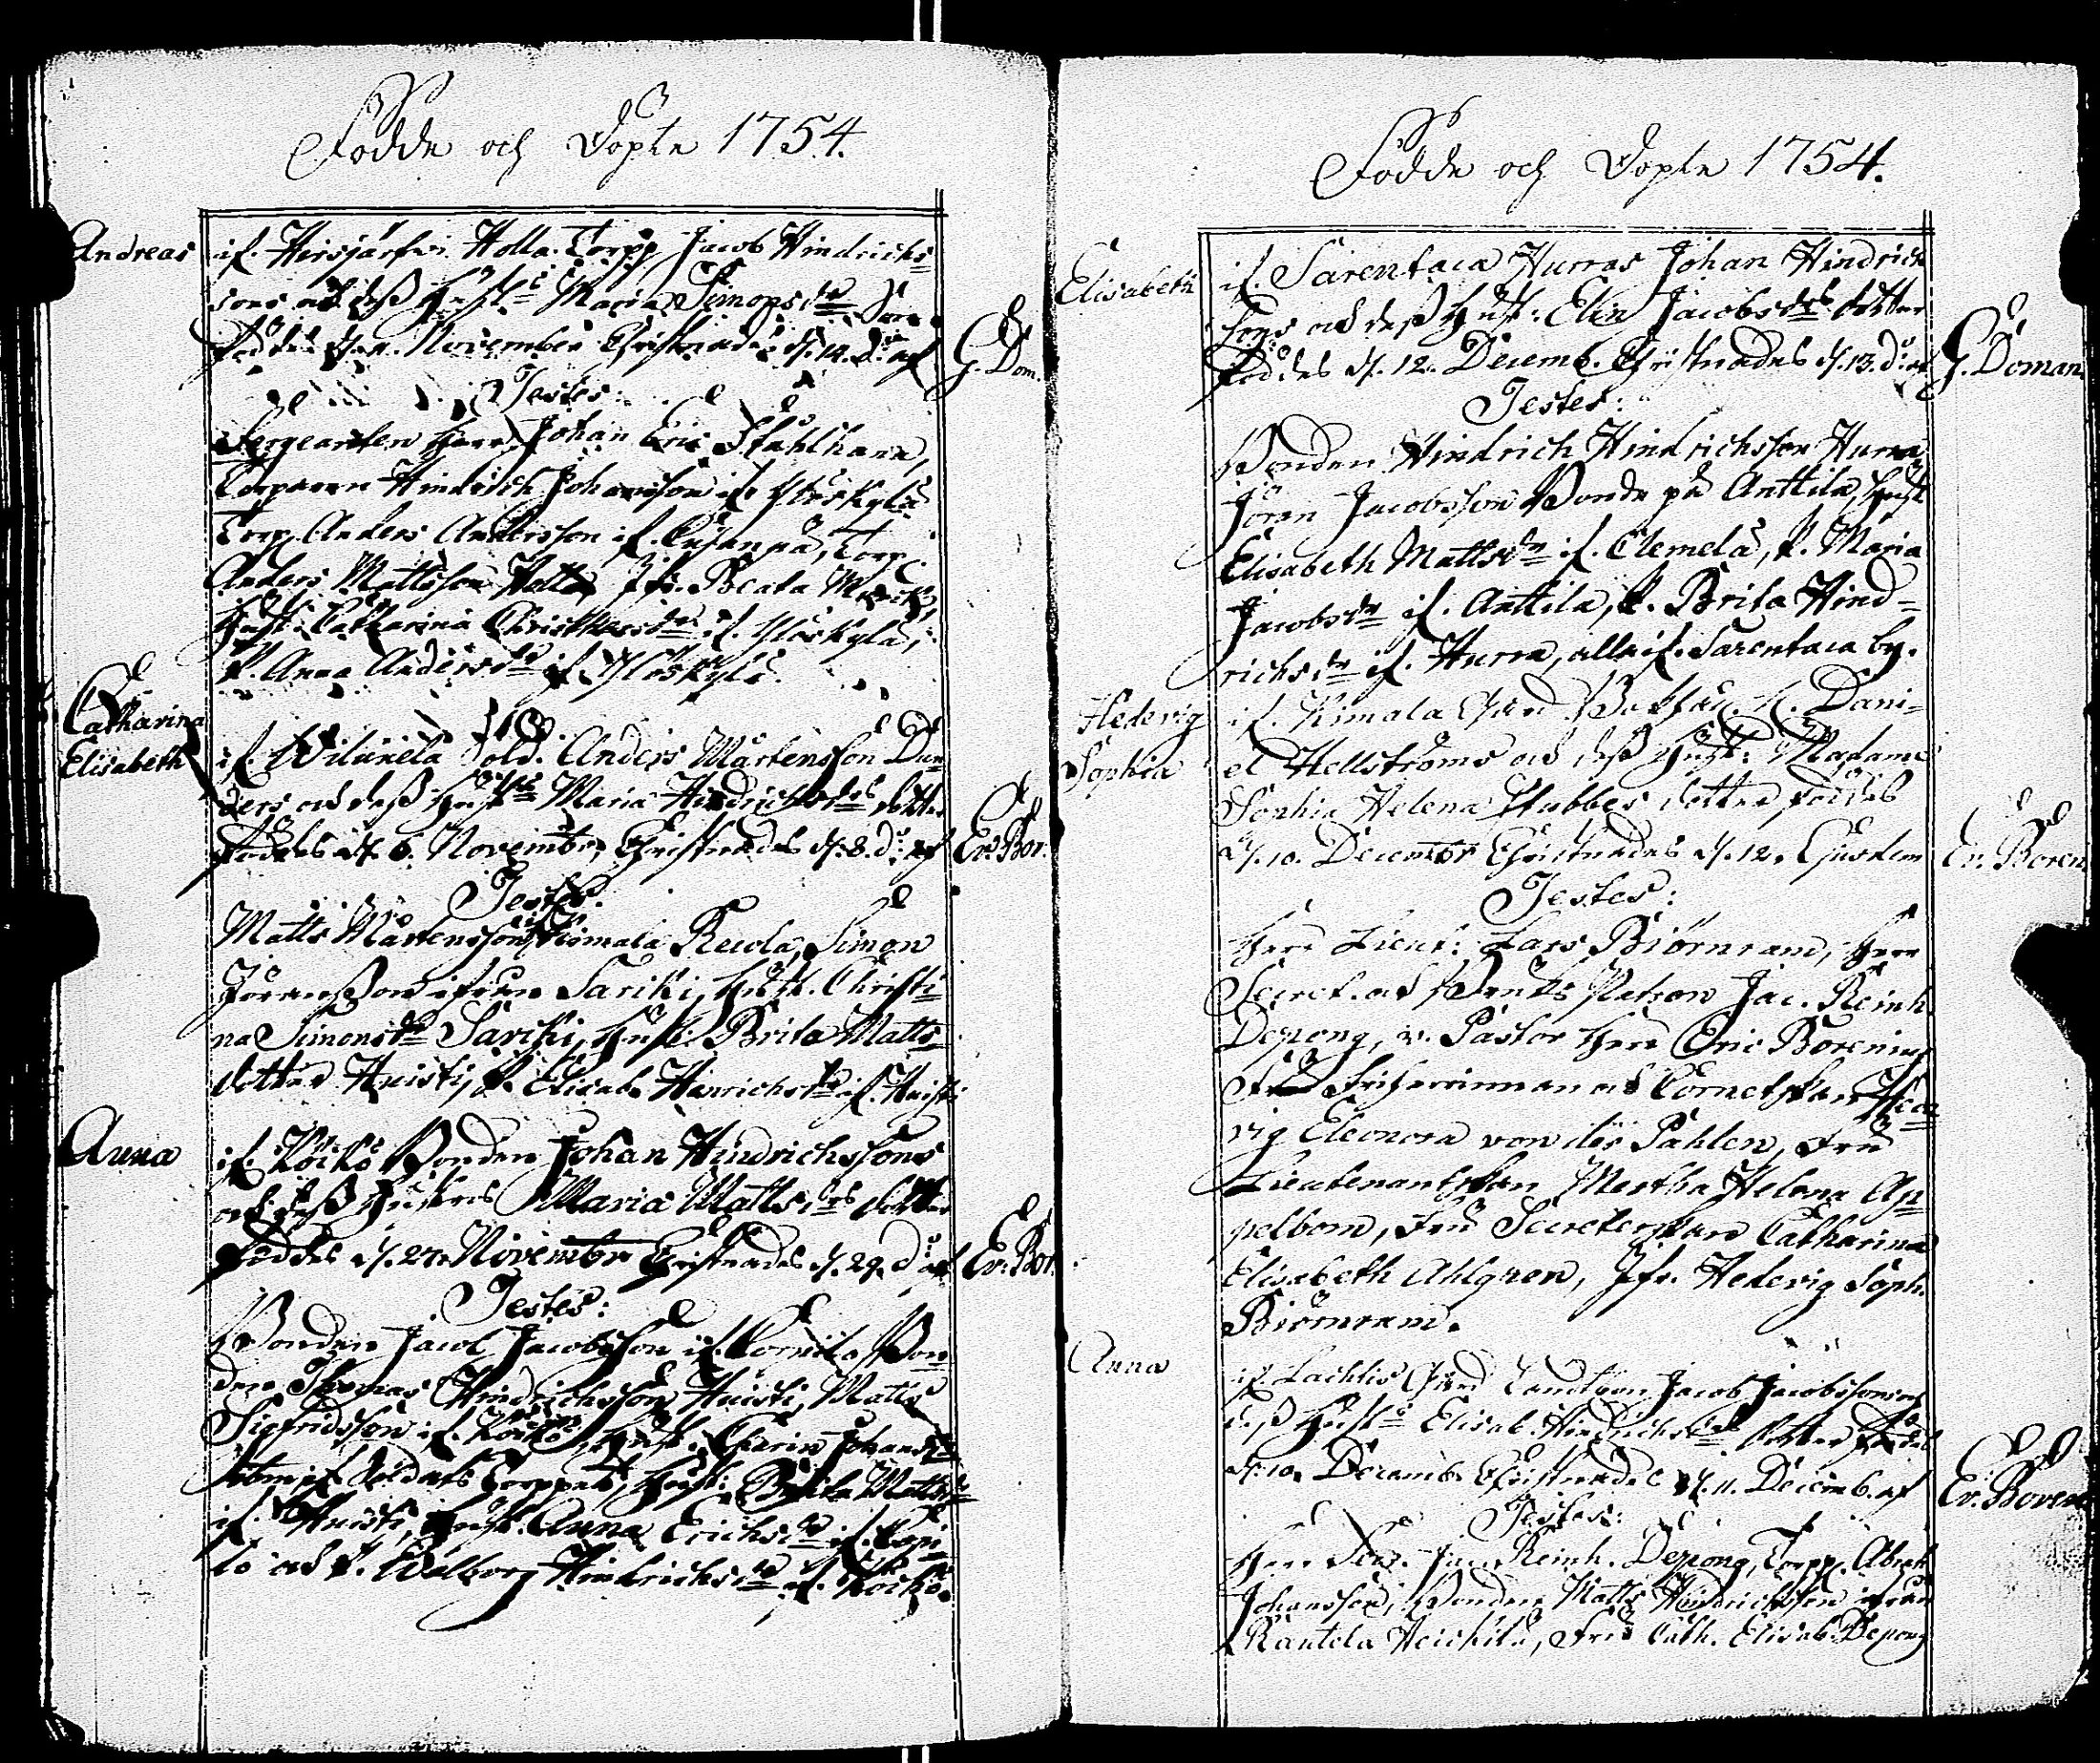 Födde och Döpte 1754.
Andreas if. Hirsjärfvi Holla Torpp. Jacob Hindrichs=
sons och dess Hust. Maria Simonsdrs Son
föddes d. November Christnades d. 14. do af G. Dom.
Testes:
Sergeanten Herr Johan Eric Stahlhane,
Torparen Hindrich Johansson if. Yløskylä
Torp. Anders Andersson if. Torp.
Anders Mattsson Holla, Jfr. Beata
Hust. Catharina if. Yløskylä,
P. Anna Andersdr if. Yløskylä.
Catharina Elisabeth
if. Wiluxela Sold. Anders Mårtensson Dun
ders och dess Hustrs Maria Hindrichsdrs dotter
föddes d. 6. Novembr, Christnades d. 8. do af Er. Bor.
Testes.
Matts Mårtensson Kiomala Recola, Simon
Jöransson ifrån Sariki, Hust. Christi=
na Simonsdr Sariki, Hust. Brita Matts=
dotter Huisti, P. Elisab. Hinrichsdr if. Huisti
Anna if. Koikö Bonden Johan Hindrichssons
och dess Hustrus Maria Mattsdrs dotter
föddes d. 27. Novembr Christnades d. 29. do af Er. Bor.
Testes:
Bonden Jacob Jacobsson if. Bon=
den Thomas Hindrichsson Huisti, Matts
Sigfridsson if. Koikö, Hust. Charin Johansdr
if. Soldats Torppet, Hust. Brita Mattsdr
if. Huisti, Hust. Anna Erichsdr if.
lö och P. Walborg Hindrichsdr if. Koikö.
Födde och Döpte 1754.
Elisabeth if. Sarentaca Hurras Johan Hindrich
sons och dess Hust. Elin Jacobsdrs dotter
föddes d. 12. Decemb. Christnades d. 13. do af G. Doman
Testes:
Bonden Hindrich Hindrichsson Hurra,
Jöran Jacobsson Bonde på Anttila, Hust.
Elisabeth Mattsdr if. Clemelä, P. Maria
Jacobsdr if. Anttila, P. Brita Hind=
richsdr if. Hurra, alla if. Sarentaca by.
Hedevig Sophia
if. Kimala Gård H. Dani=
el Hellströms och dess Hust: Madame
Sophia Helena Stubbes dotter föddes
d. 10. Decembr Christnades d. 12. Ejusdem Er. Boren
Testes:
Herr Lieut: Lars Biörnram, Herr
Secret. och Bruks Patron Jac. Reinh.
Depong, v. Pastor Herr Eric Borenius
Friherrinnan och Cornetskan Hed=
vig Eleonora von der Pahlen, Fru
Lieutenantskan Mertha Helena Ap=
pelbom, Fru Secreterskan Catharina
Elisabeth Ahlgren, Jfr. Hedevig Soph.
Biörnram.
Anna if. Lachlis Gård Landbon Jacob Jacobssons och
dess Hustr Elisab. Hindrichsdrs dotter föddes
d. 10. Decemb. Christnades d. 11. Decemb. af Er. Boren
Testes:
Herr Secr. Jac. Reinh. Depong, Torpp. Abrah.
Johansson, Bonden Matts Hindrichsson ifrån
Rantela Heickilä, Fru Cath. Elisab. Depong